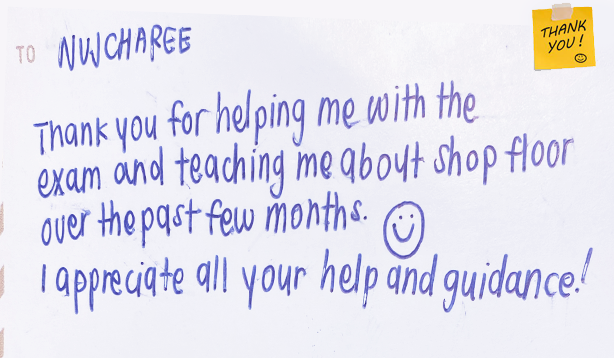 TO NUJCHAREE
THANK
YOU!
Thank you for helping me with the
exam and teaching me about shop floor
over the past few months.
I appreciate all your help and guidance!